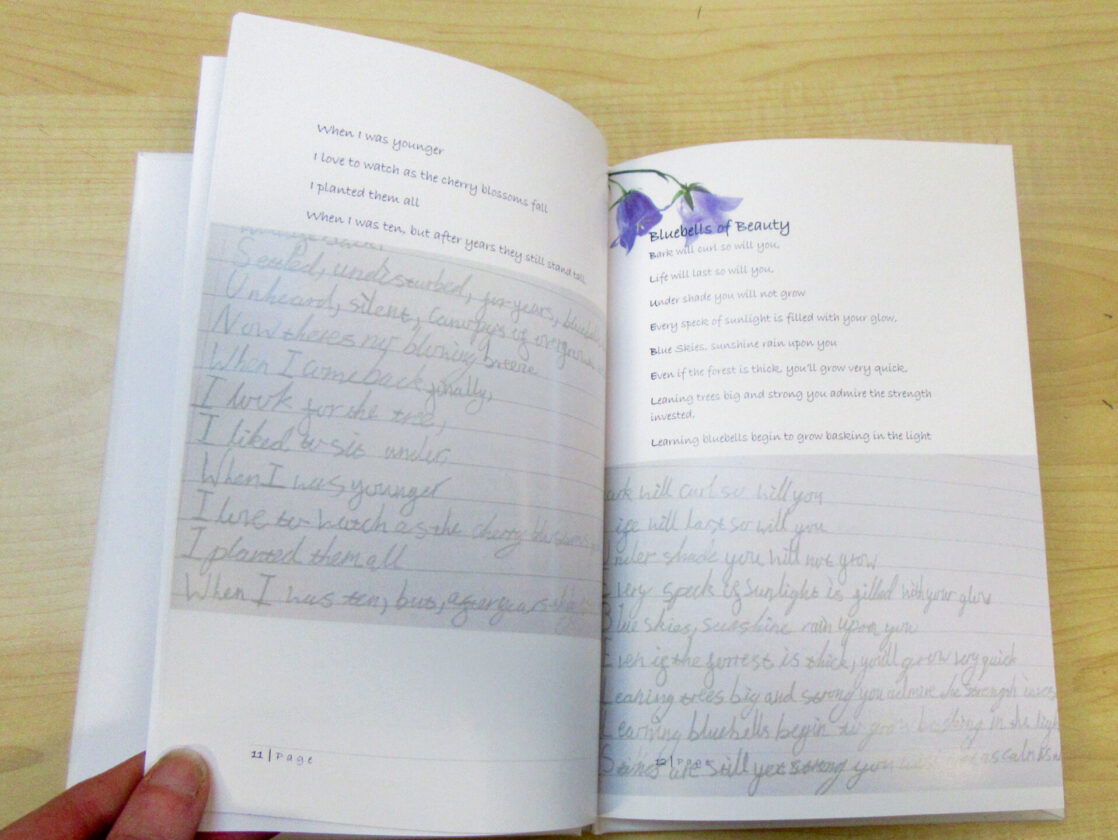 When I was younger
I love to watch as the cherry blossoms fall
I planted them all
When I was ten, but after years they still stand tall
Seated, undisturbed, for years,
Unheard, silent, canopys of
Now theres my blowing breeze
When I came back finally,
I look for the tree,
I liked to sit under
When I was younger
I love to watch as the cherry blossoms
I planted them all
When I was ten, but, after years
11 | Page
Bluebells of Beauty
Bark will curl so will you,
Life will last so will you,
Under shade you will not grow
Every speck of sunlight is filled with your glow,
Blue Skies, sunshine rain upon you
Even if the forest is thick, you'll grow very quick,
Leaning trees big and strong you admire the strength
invested,
Learning bluebells begin to grow basking in the light
ark will curl so will you
ife will last so will you
nder shade you will not grow
very speck of sunlight is filled with your glow
Blue skies, sunshine rain upon you
Even if the forrest is thick, you'll grow very quick
Leaning trees big and strong you admire the strength
Learning bluebells begin to grow basking in the
are still yet strong you
12 | Page